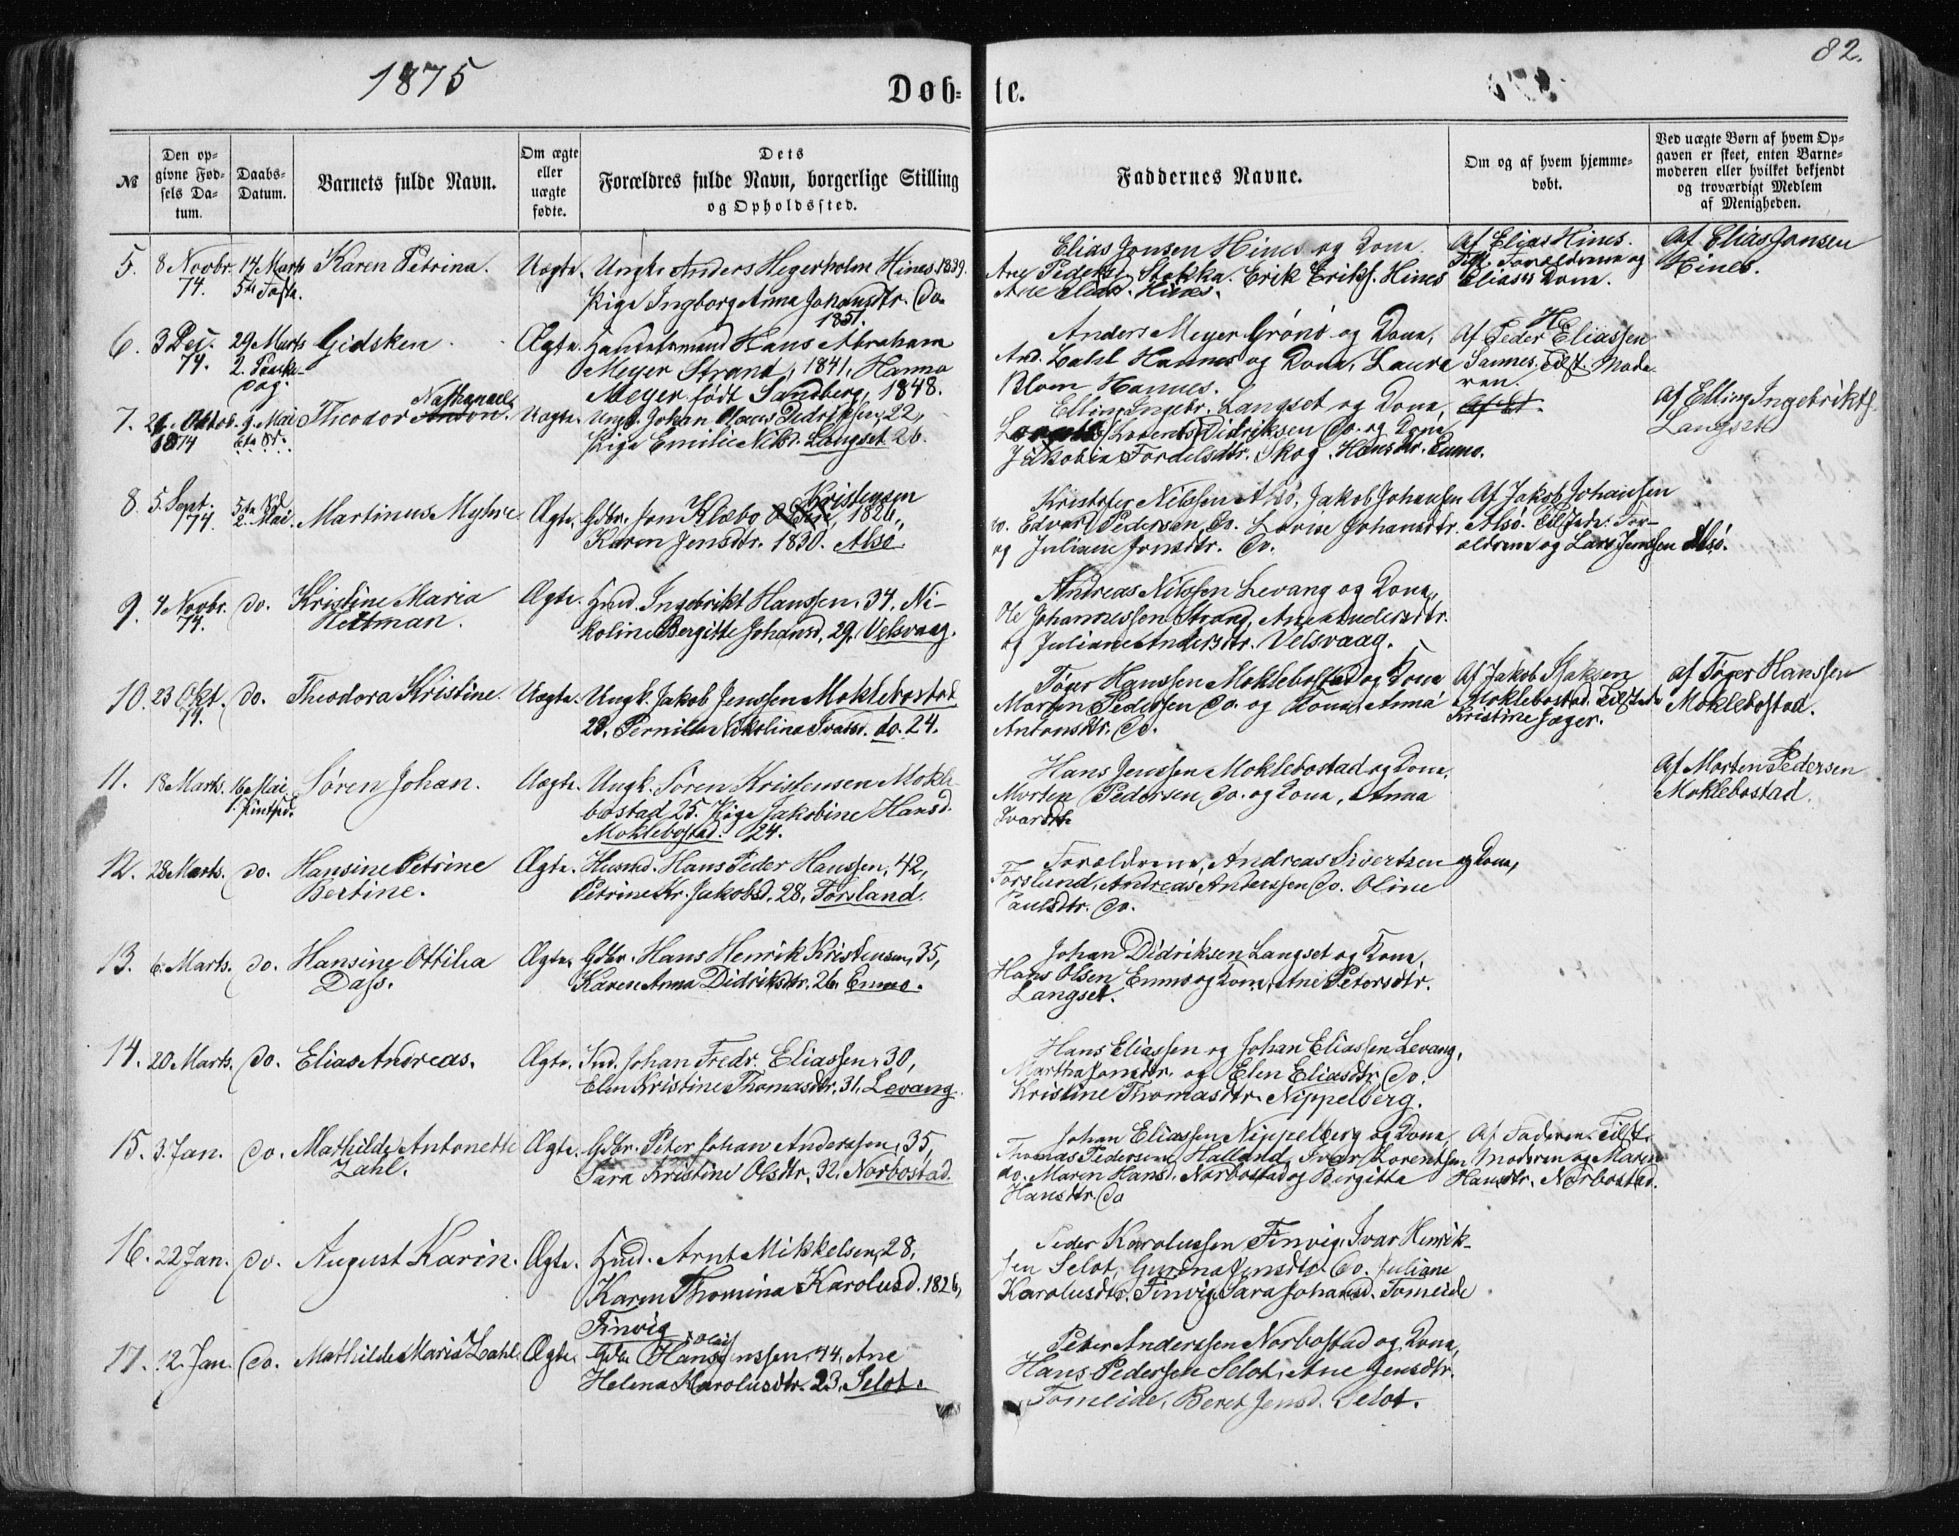 1875
82.
Døb-
te.
№
Den op-
givne Fød-
sels Da-
tum.
Daabs-
Datum.
Barnets fulde Navn.
Om ægte
eller
uægte
fødte.
Dets
Forældres fulde Navn, borgerlige Stilling
og Opholdssted.
Faddernes Navne.
Om og af hvem hjemme-
døbt.
Ved uægte Børn af hvem Op-
gaven er skeet, enten Barne-
moderen eller hvilket bekjendt
og troværdigt Medlem
af Menigheden.
5. 8 Novbr. 74. 14 Marts 5te Faste
Karen Petrina.
Uægte.
Ungk. Anders Hegerholm Hines 1839.
Pige Ingborg Anna Johansdtr. do.
1851.
Elias Jonsen Hines og Kona.
Stokka. Erik Eriks. Hines
Ane Eliasd. Hines.
Af Elias Hines.
Tilst. Forældrene og
Elias's Kona.
Af Elias Jonsen
Hines.
6. 3 Dec. 74. 29 Marts 2. Paaske-
dag.
Gidsken
Ægte.
Handelsmand Hans Abraham
Meyer Strand, 1841, Hanna
Meyer født Sandberg, 1848.
Anders Meyer Grønø og Kona,
And. Zahl Hannes og Kona, Laura
Blom Hannes.
Af Peder Eliassen
Sannes. Tilst. Mode-
ren.
7. 26. Oktob. 1874 9. Mai
Theodor Nathanael
Uægte.
Ungk. Johan Olaus Didriksen, 22,
Pige Emilie Nilsd. Langset 26.
Elling Ingebr. Langset og Kona,
Lorents Didriksen do. og Kona
Jakobia Fordelsdtr. Skog. Hansdtr. Enmo.
Af Elling Ingebrikts.
Langset
8. 5. Sept. 74. 2. Mai
Martinus Myhre
Ægte.
Gdbr. Jon Klæbo Kristensen 1826,
Karen Jensdtr. 1830. Alsø
Kristofer Nilssen Alsø, Jakob Johansen
do. Edvart Pedersen do. Lovise Johansdtr.
og Juliane Jonsdtr. do.
Af Jakob Johansen
Alsø. Tilstede: For-
ældrene og Lars Jenssen Alsø.
9. 4 Novbr. 74. do.
Kristine Maria
Heitman.
Ægte.
Hmd. Ingebrikt Hanssen, 34. Ni-
koline Bergitte Johansd, 29. Velsvaag.
Andreas Nilssen Levang og Kona,
Ole Johannessen Strand, Ane Andersdtr.
og Juliane Andersdtr. Velsvaag.
10. 23 Okt. 74. do.
Theodora Kristine
Uægte.
Ungk. Jakob Jenssen Moklebostad
28. Pernilla Nikolina Ivarsd. do. 24.
Tøger Hanssen Moklebostad og Kona
Morten Pedersen do. og Kona, Anna
Antonsdtr. do.
Af Jakob Isaksen
Moklebostad. Tilstede
Kristine Jæger.
af Tøger Hanssen
Moklebostad.
11. 18 Marts. 16 Mai 1. Pintsed.
Søren Johan.
Uægte.
Ungk. Søren Kristensen Mokle-
bostad 25. Pige Jakobine Hansd.
Moklebostad. 24.
Hans Jenssen Moklebostad og Kona,
Morten Pedersen do. og Kona, Anna
Ivarsdtr.
Af Morten Pedersen
Moklebostad.
12. 28 Marts. do.
Hansine Petrine
Bertine.
Ægte.
Husmd. Hans Peder Hanssen, 42,
Petrine Kr. Jakobsd. 28. Forsland.
Forældrene, Andreas Sivertsen og Kona,
Forsland, Andreas Anderssen do. Oline
Paulsdtr. do.
13. 6. Marts. do.
Hansine Ottilia
Dass.
Ægte.
Gdbr. Hans Henrik Kristensen, 35,
Karen Anna Didriksdtr. 26. Enmo.
Johan Didriksen Langset og Kona,
Hans Olsen Enmo og Kona, Ane Petersdtr.
Langset.
14. 20. Marts. do.
Elias Andreas.
Ægte.
Ind. Johan Fredr. Eliassen, 30,
Elen Kristine Thomasdtr. 31. Levang.
Hans Eliassen og Johan Eliassen Levang,
Martha Jonsdtr. og Elen Eliasdtr. do.
Kristine Thomasdtr. Nippelberg.
15. 3. Jan. do.
Mathilde Antonette
Zahl.
Ægte.
Gdbr. Peter Johan Anderssen, 35,
Sara Kristine Olsdtr. 32. Norbostad.
Johan Eliassen Nippelberg og Kona,
Thomas Pedersen Halland, Ivar Lorentsen
do. Maren Hansd. Norbostad og Bergitta
Hansdtr. do
Af Faderen. Tilst.
Moderen og Maren
Hansdtr. Norbostad.
16. 22 Jan. do.
August Karin.
Ægte.
Hmd. Arnt Mikkelsen, 28,
Karen Thomina Karolusd. 1826,
Finvig
Peder Karolussen Finvig. Ivar Henrik-
sen Seløt, Jensdtr. do. Juliane
Karolusdtr. Finvig, Sara Johansd. Tomeide
17. 12. Jan. do.
Mathilde Maria Zahl.
Ægte.
Gdbr. Hans Olai Jenssen, 44, Ane
Helena Karolusdtr. 23. Seløt.
Peter Anderssen Norbostad og Kona,
Hans Pedersen Seløt, Ane Jensdtr.
Tomeide, Beret Jensd. Seløt.